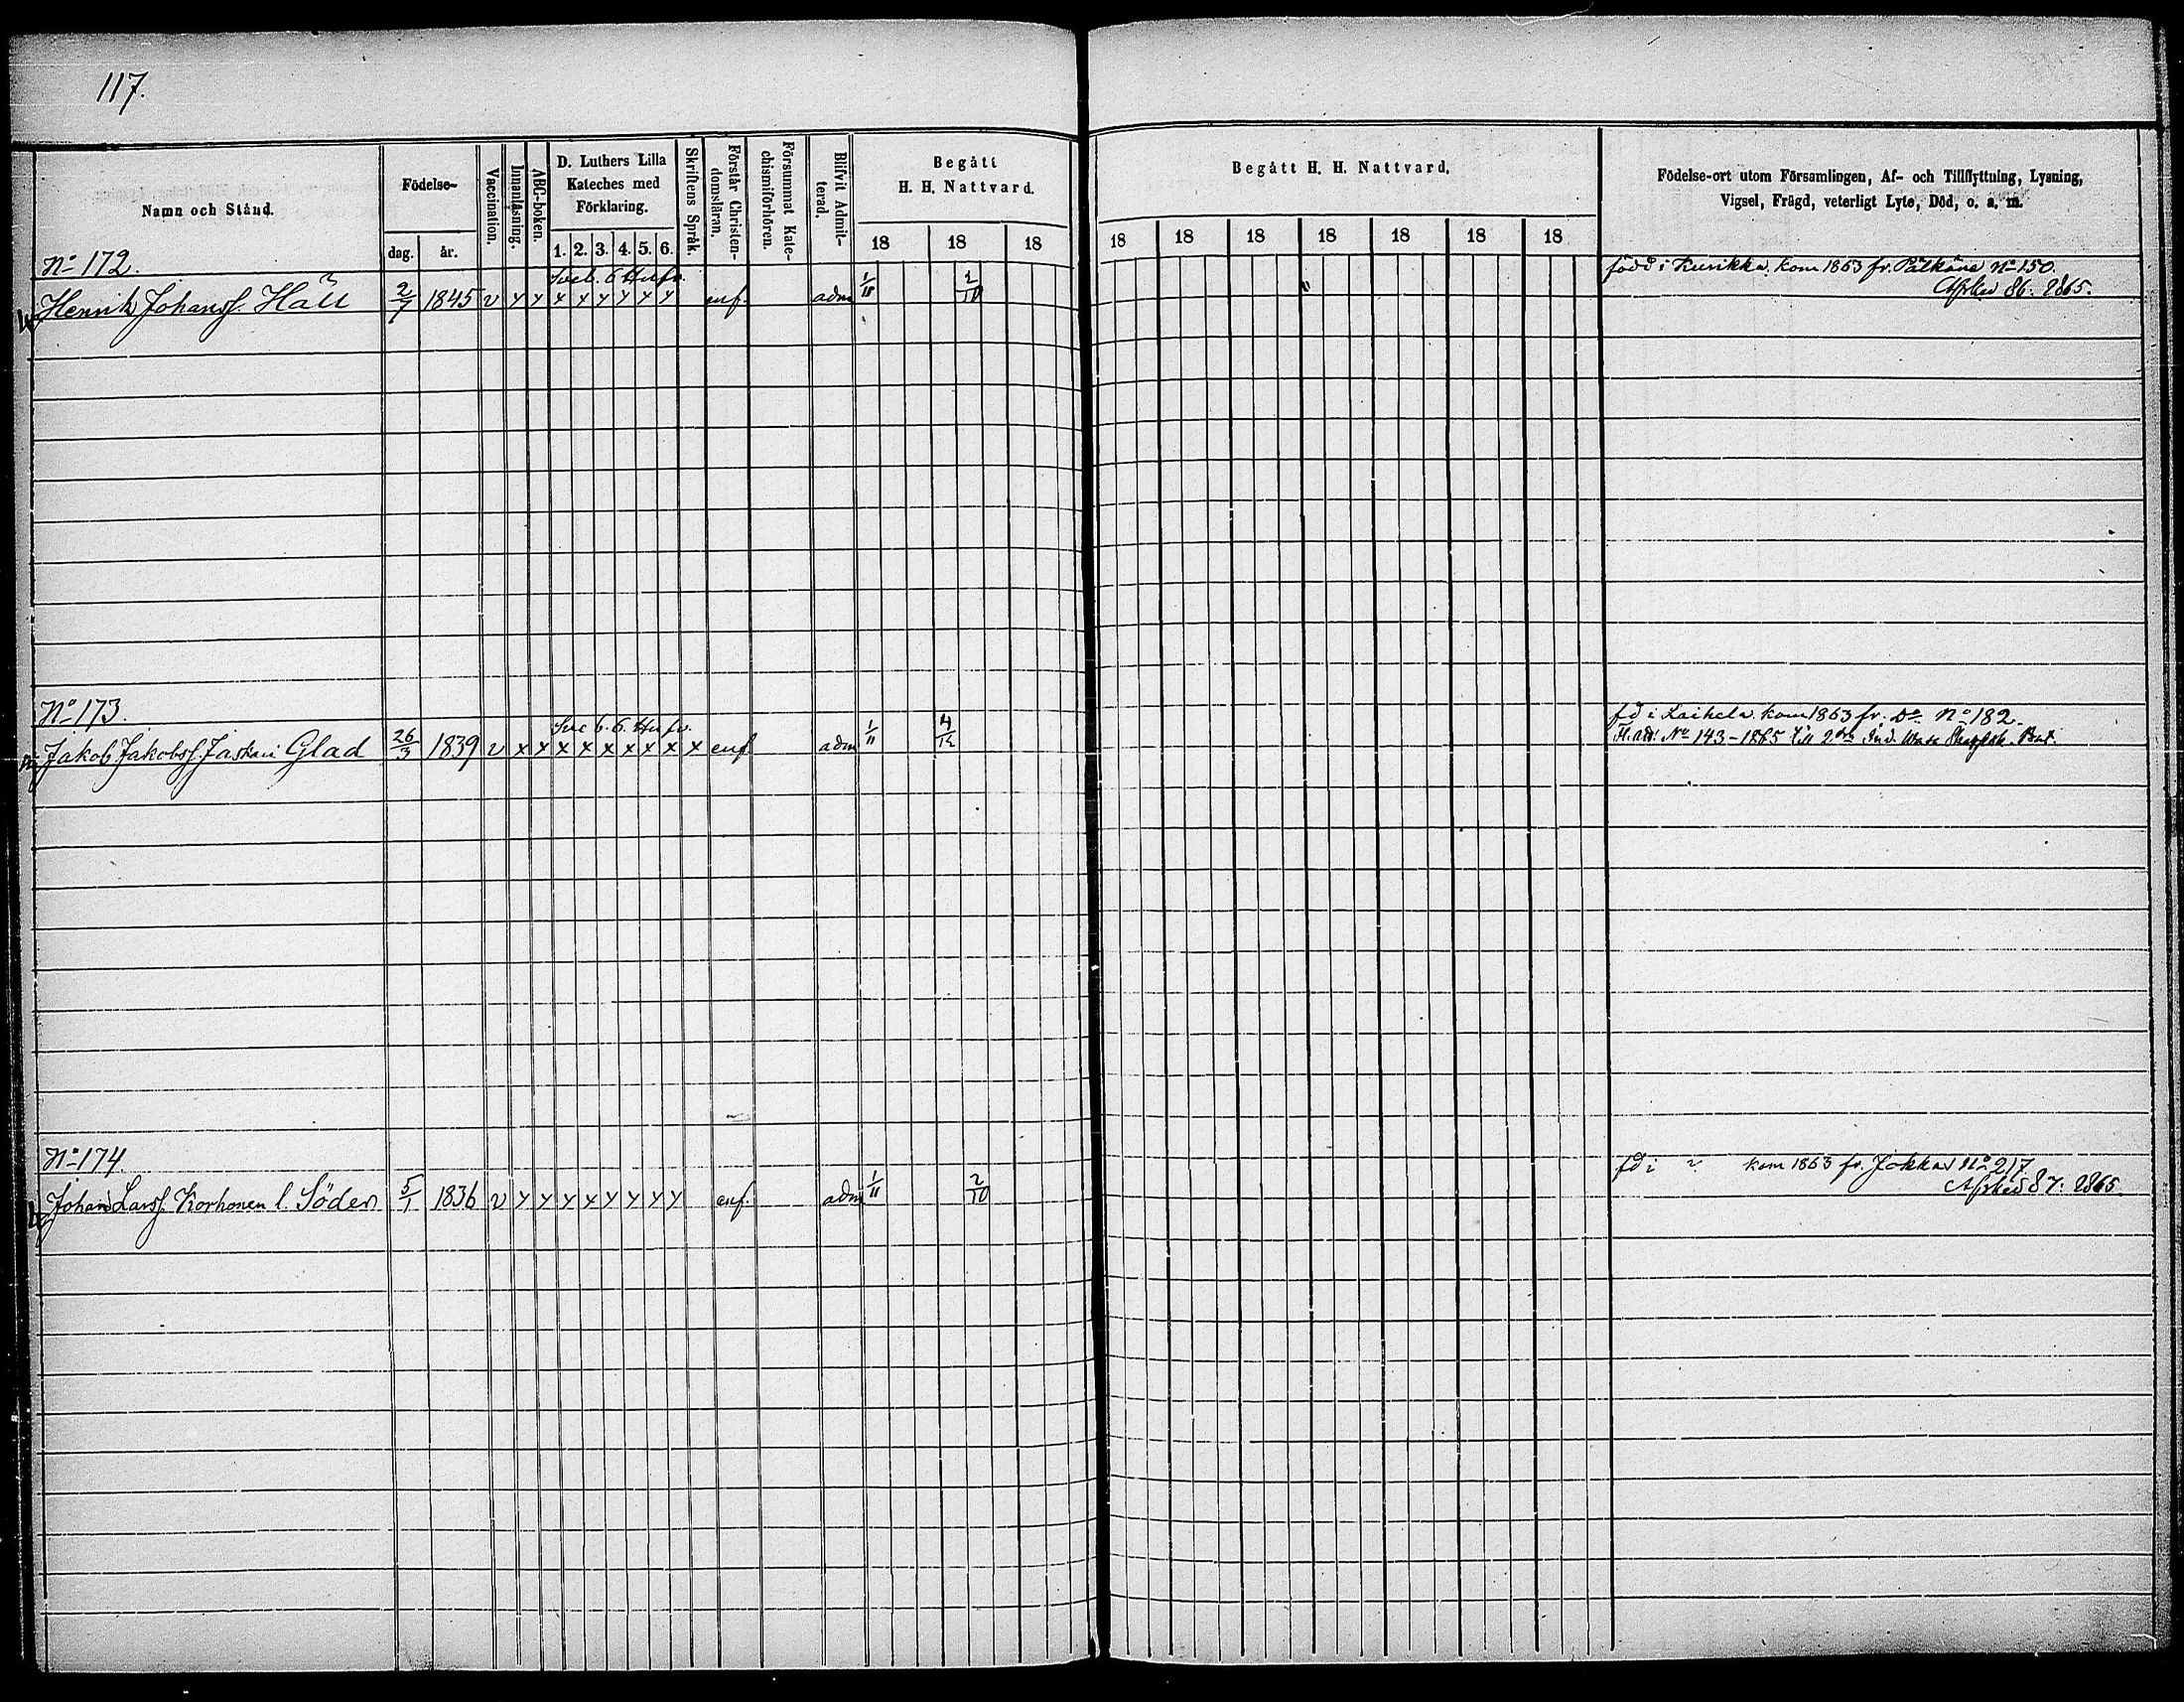 117.
Namn och Stånd.
Födelse-
dag.
år.
Vaccination.
Innanläsning.
ABC-boken.
D. Luthers Lilla
Kateches med
Förklaring.
1. 2. 3. 4. 5. 6.
Skriftens Språk.
Förstår Christen-
domsläran.
Försummat Kate-
chismiförhören.
Blifvit Admit-
terad.
Begått
H. H. Nattvard.
18 18 18
Begått H. H. Nattvard.
18 18 18 18 18 18 18
Födelse-ort utom Församlingen, Af- och Tillflyttning, Lysning,
Vigsel, Frägd, veterligt Lyte, Död, o. a. m.
No 172.
Sveb. 6 Hufv.
född i Kurikka. kom 1863 fr. Pälkäne No 150.
Henrik Johanss. Häll 2/7 1845 v x x x x x x x x enf. adm 1/11 2/10
Afsked 86. 1865.
No 173.
Sveb. 6. Hufv.
fd i Laihela kom 1863 fr. Do No 182.
Jakob Jakobss. Jaskari Glad 26/3 1839 v x x x x x x x x x enf adm 1/11 4/12
No 143-1865 till 2dra Ind. Wasa Bat.
No 174.
fd i ? kom 1863 fr. Jokkas No 217.
Johan Larss. Korhonen l. Söder 5/1 1836 v x x x x x x x x enf. adm 1/11 2/10
Afsked 87. 1865.